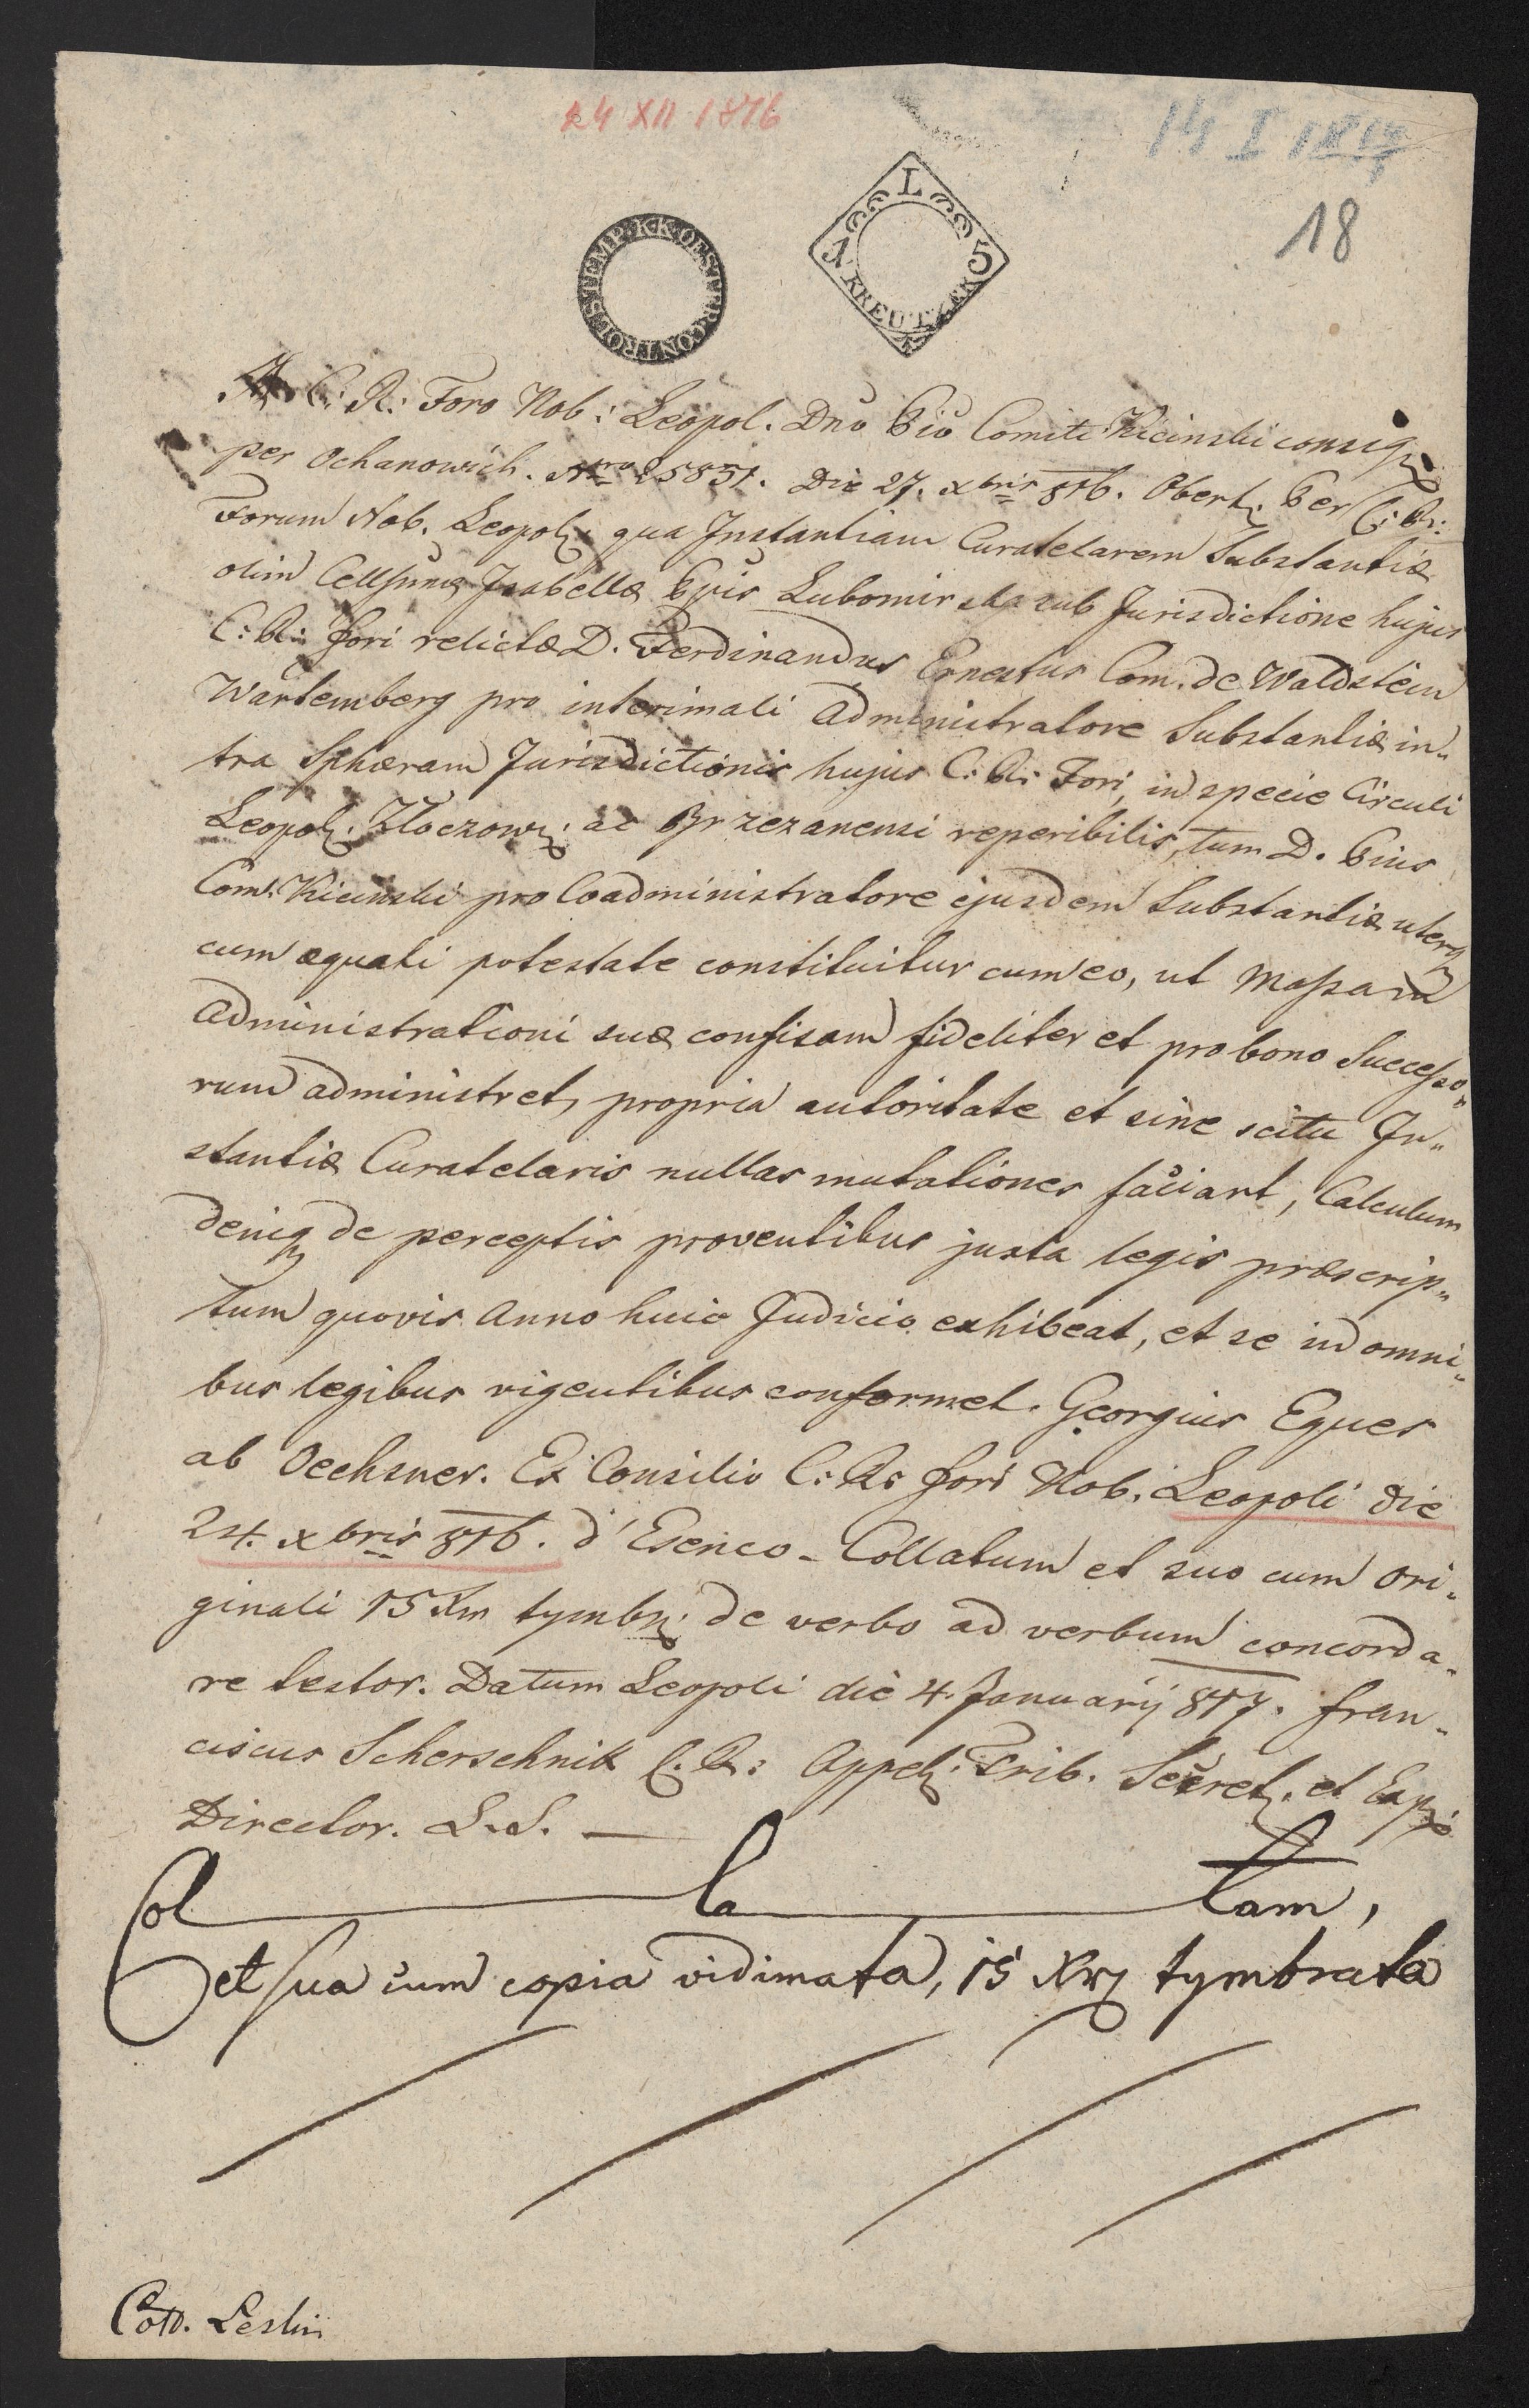 24 XII 1816
14 I 1817
18
STEMP · K K OESTER CONTROLS
L
15
KREUTZER
C: R: Foro Nob: Leopol. Dno Pio Comiti Kicinski consig
per Ochanowich. Nro 25831. Die 27. xbris 816. Obert. Per C: R:
Forum Nob. Leopol: qua Instantiam Curatelarem Substantiæ
olim Cellsimæ Isabellæ Ppis Lubomirska sub Jurisdictione hujus
C: R: Fori relictæ D. Ferdinandus Ernestus Com. de Waldstein
Wartemberg pro interimali Administratore Substantiæ in„
tra Sphæram Jurisdictionis hujus C: R: Fori, in specie Circuli
Leopol: Złoczow: ac Brzezanensi reperibilis, tum D. Pius
Com. Kicinski pro Coadministratore ejusdem Substantiæ uterq
cum æquali potestate constituitur cum eo, ut Massam
administrationi suæ confisam fideliter et pro bono Successo„
rum administret, propria autoritate et sine scitu In„
stantiæ Curatelaris nullas mutationes faciant, Calculum
deniq de perceptis proventibus juxta legis præscrip„
tum quovis Anno huic Judicio exhibeat, et se in omni„
bus legibus vigentibus conformet. Georgius Eques
ab Oechsner. Ex Consilio C: R: Fori Nob. Leopoli die
24. xbris 816. d'Esenco - Collatum et suo cum ori„
ginali 15 Xrr tymbr: de verbo ad verbum concorda„
re testor. Datum Leopoli die 4. Januarij 817. Fran„
ciscus Scherschnik C. R: Appel: Trib. Secret. et Exp:
Director. L.S. —
Col la tam,
et sua cum copia vidimata, 15 Xrr tymbrata